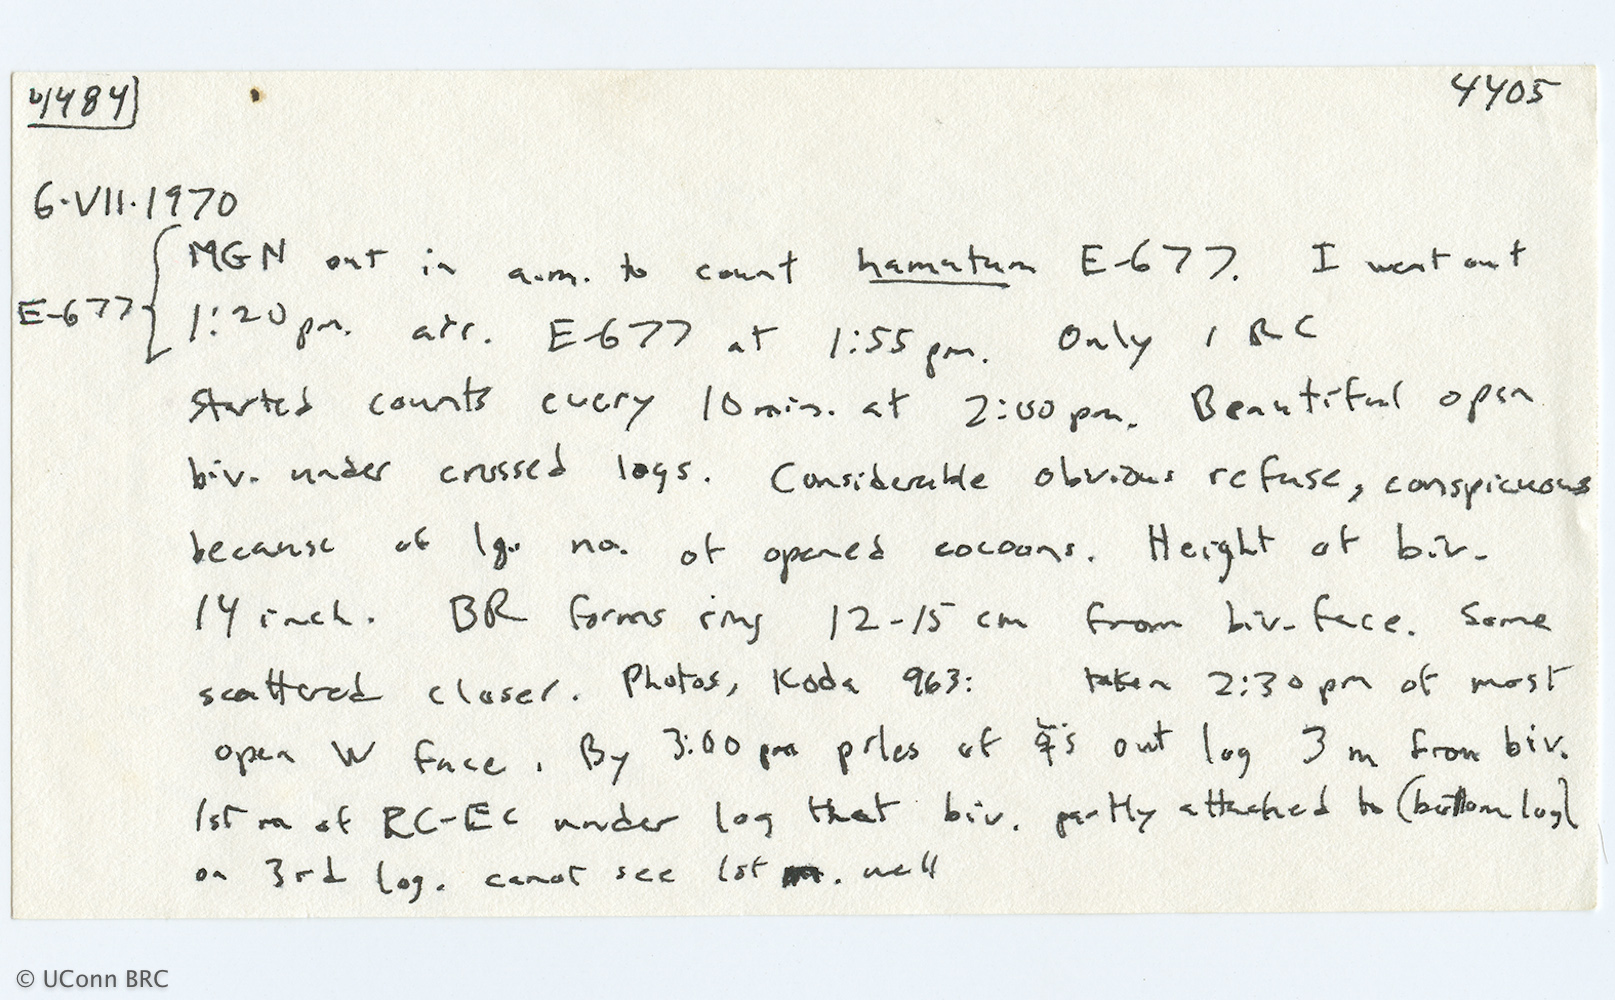 4484 4405
6·VII·1970
MGN out in a.m. to count hamatum E-677. I went out
E-677 1:20 pm. arr. E-677 at 1:55 pm. Only 1 RC
Started counts every 10 min. at 2:00 pm. Beautiful open
biv. under crossed logs. Considerable obvious refuse, conspicuous
because of lg. no. of opened cocoons. Height of biv.
14 inch. BR forms ring 12-15 cm from biv. face. Some
scattered closer. Photos, Koda 963: taken 2:30 pm of most
open W face. By 3:00 pm piles of ☿'s out log 3 m from biv.
1st m of RC-EC under log that biv. partly attached to (bottom log)
on 3rd log. canot see 1st m. well
© UConn BRC